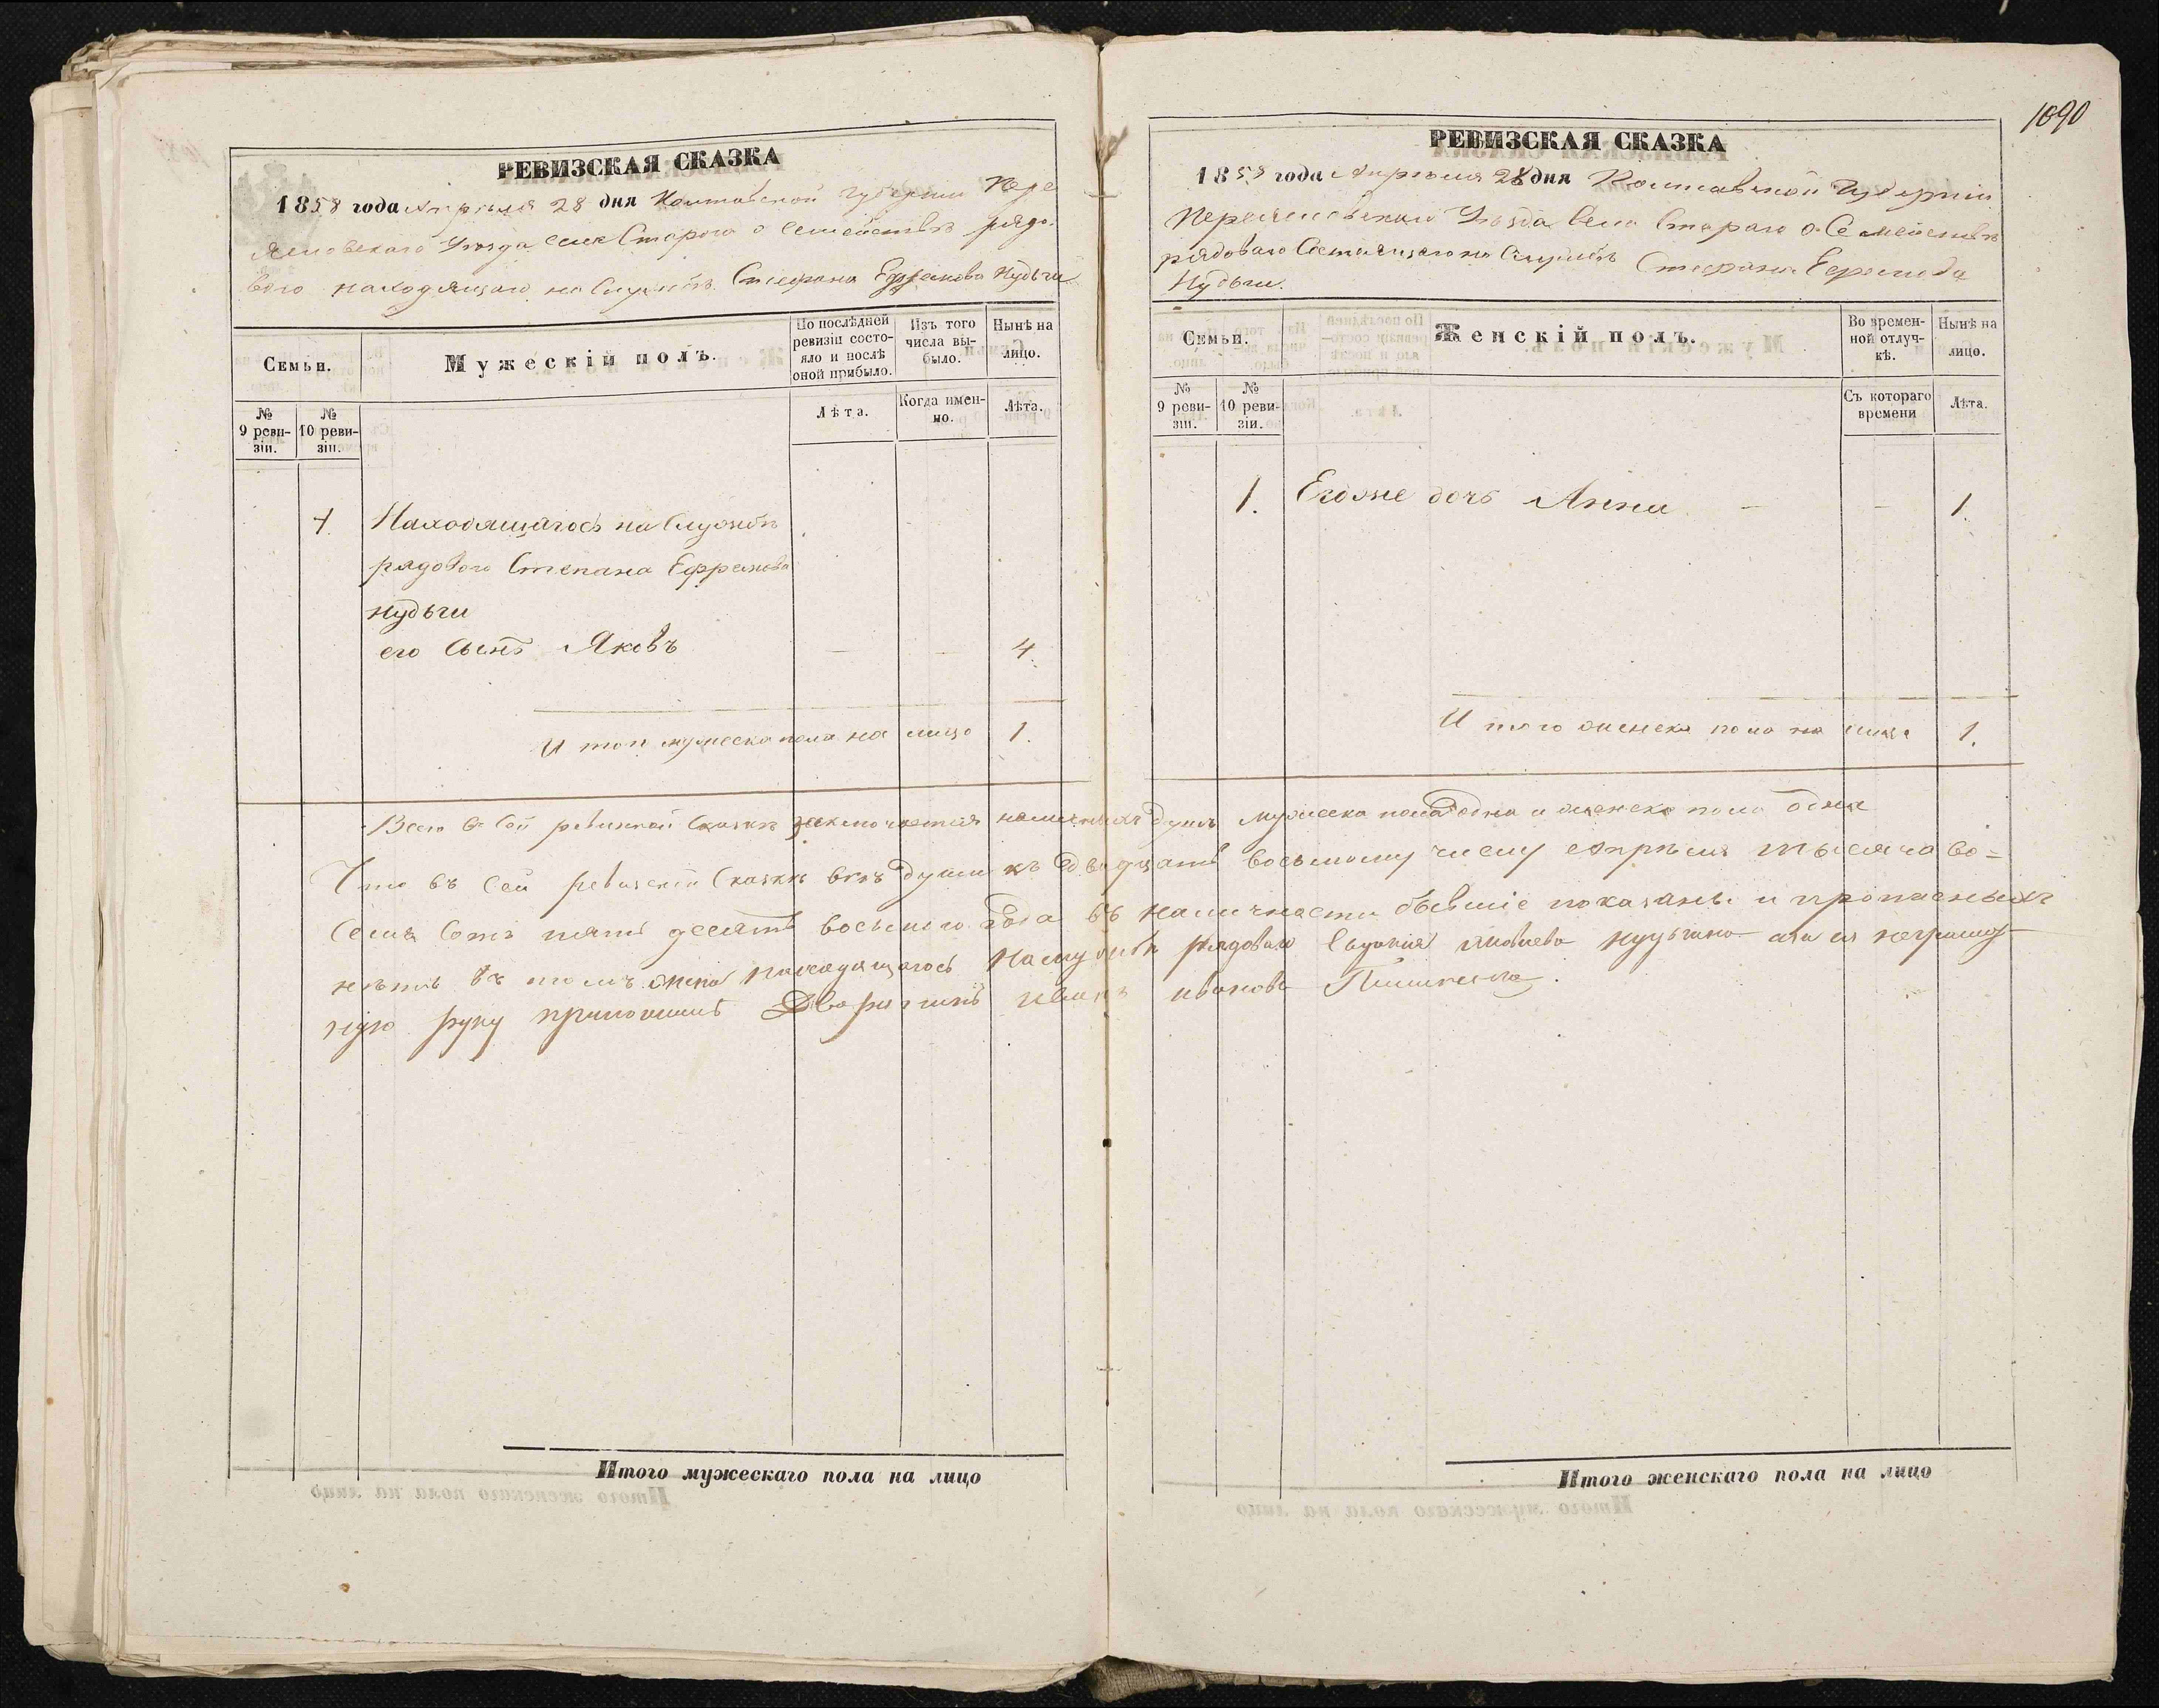 РЕВИЗСКАЯ СКАЗКА
1858 года Апреля 28 дня Полтавской Губернии Пере
яславскаго Уезда села Старого о Семействе рядо
вого находящаго на Службе Стефана Ефремова Нудьги
Семьи.
Мужескій полъ.
По послѣдней ревизіи состояло и послѣ оной прибыло.
Изъ того числа выбыло.
Нынѣ на лицо.
№ 9 ревизіи.
№ 10 ревизіи.
Лѣта.
Когда именно.
Лѣта.
1. Находящагось на Службѣ
рядового Степана Ефремова
Нудьги
его Сынъ Яковъ — — 4.
И того мужеска пола на лицо 1.
Итого мужескаго пола на лицо
1090
РЕВИЗСКАЯ СКАЗКА
1858 года Апреля 28 дня Полтавской Губерніи
Переяславскаго Уезда Села Стараго о Семействе
рядоваго Состоящаго на Службѣ Стефана Ефремова
Нудьги.
Семьи.
Женскій полъ.
Во временной отлучкѣ.
Нынѣ на лицо.
№ 9 ревизіи.
№ 10 ревизіи.
Съ котораго времени
Лѣта.
1. Егоже дочь Анна — — 1.
И того женска пола на лицо 1.
Всего в Сей ревизкой Сказкѣ заключается наличныхъ душъ мужеска пола одна и женска пола одна
Что въ Сей ревизской Сказкѣ всѣ души къ двадцать восьмому числу апрѣля тысяча во=
семь Сотъ пять десятъ восьмого года въ наличности бывшіе показаны и прописныхъ
нѣтъ въ томъ жена находящагось на службѣ рядоваго Евдокія Яковлева Нудьгина а за ея неграмот
ную руку приложилъ Дворянинъ Иванъ Иванов
Итого женскаго пола на лицо